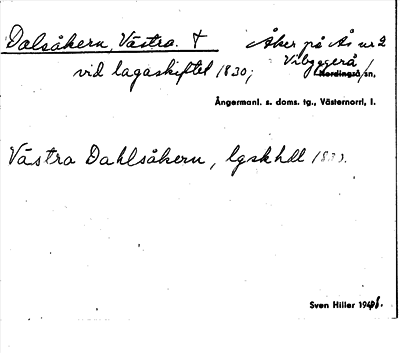 Dalsåkern, Västra. † Åker på Ås nr 2
vid lagaskiftet 1830; Vibyggerå
Nordingrå sn,
Ångermanl. s. doms. tg., Västernorrl, l.
Västra Dahlsåkern, lgskhdl
Sven Hiller 1948.